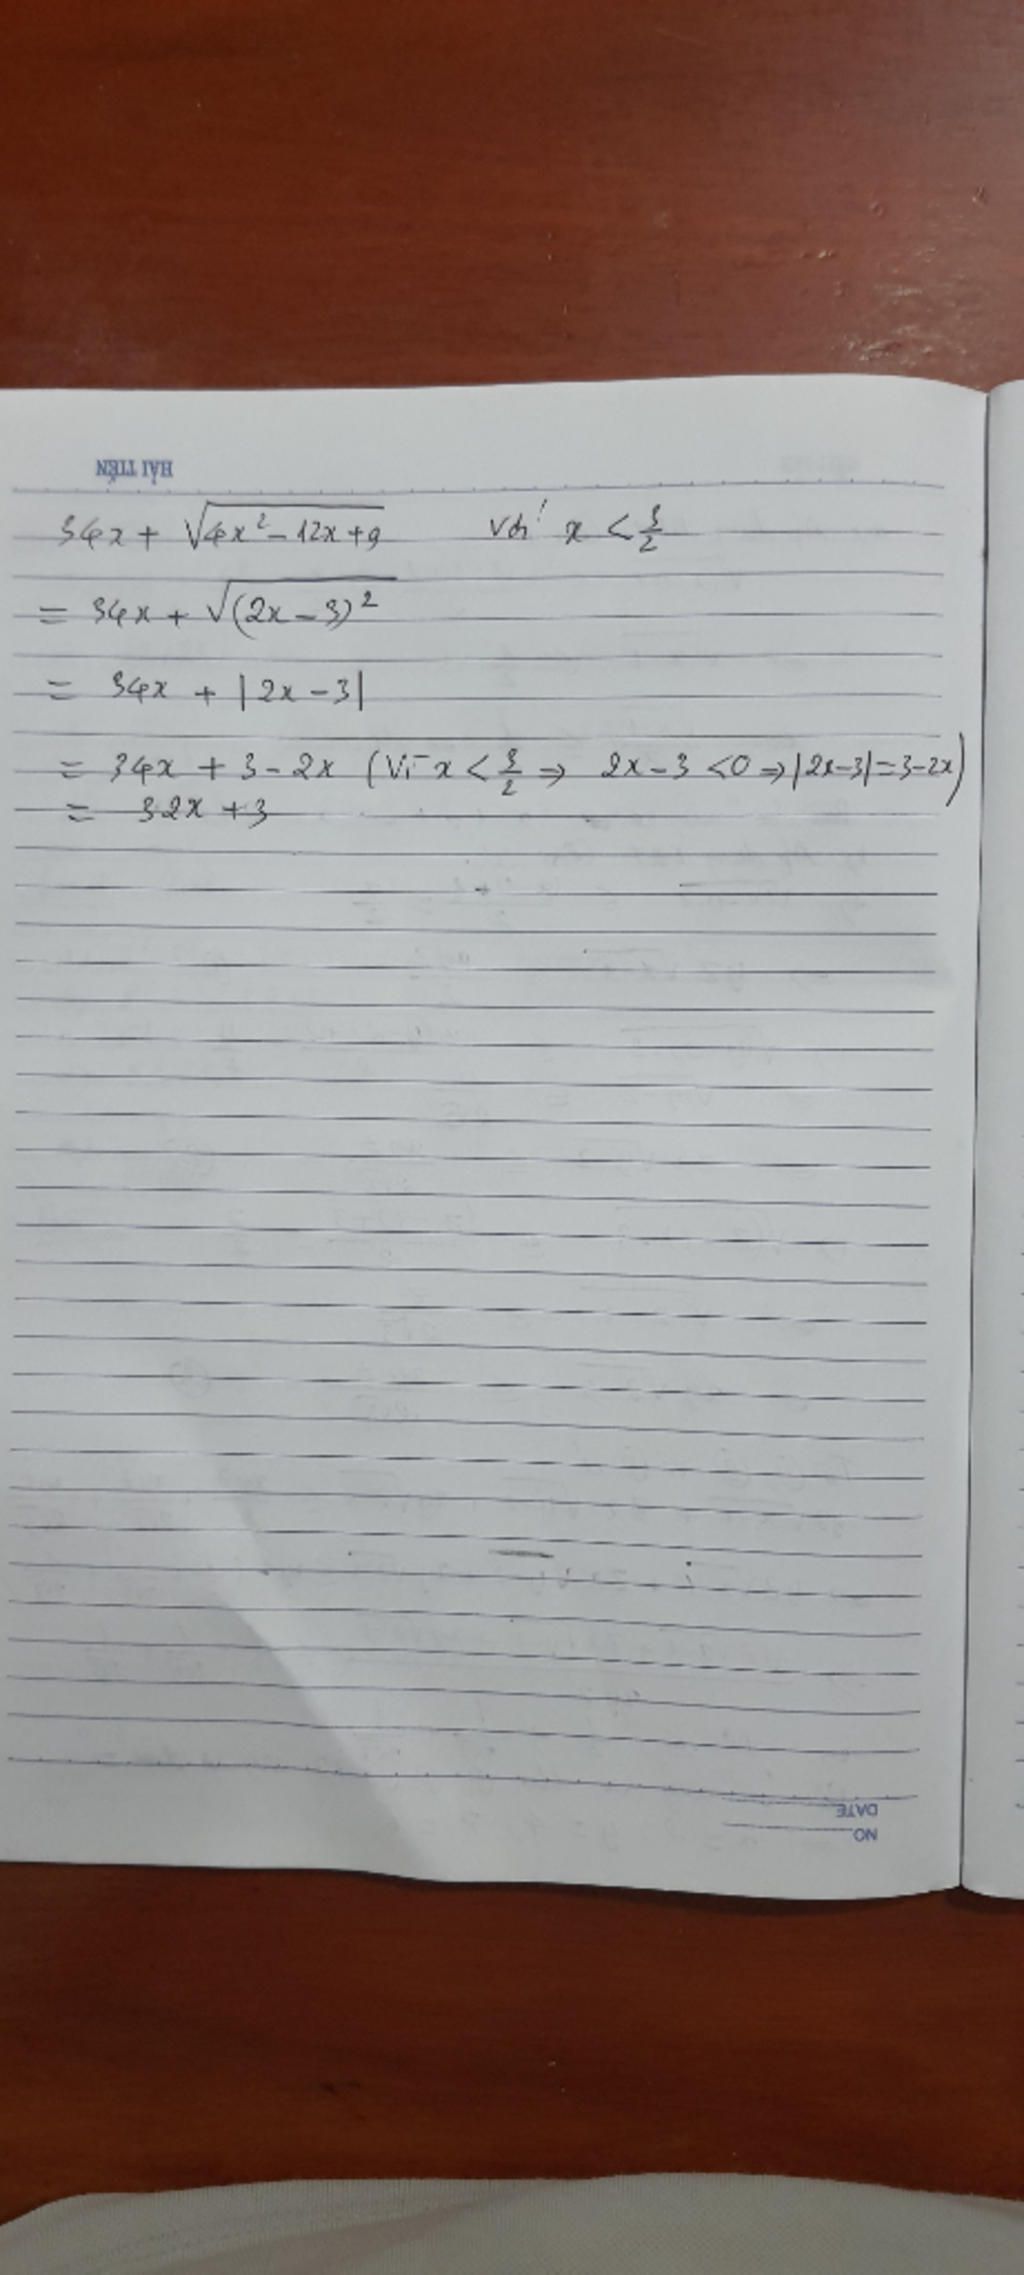 HẢI TIẾN
34x + √(4x² - 12x + 9) Với x < 3/2
= 34x + √((2x - 3)²)
= 34x + |2x - 3|
= 34x + 3 - 2x (Vì x < 3/2 ⇒ 2x - 3 < 0 ⇒ |2x-3| = 3-2x)
= 32x + 3
DATE
NO